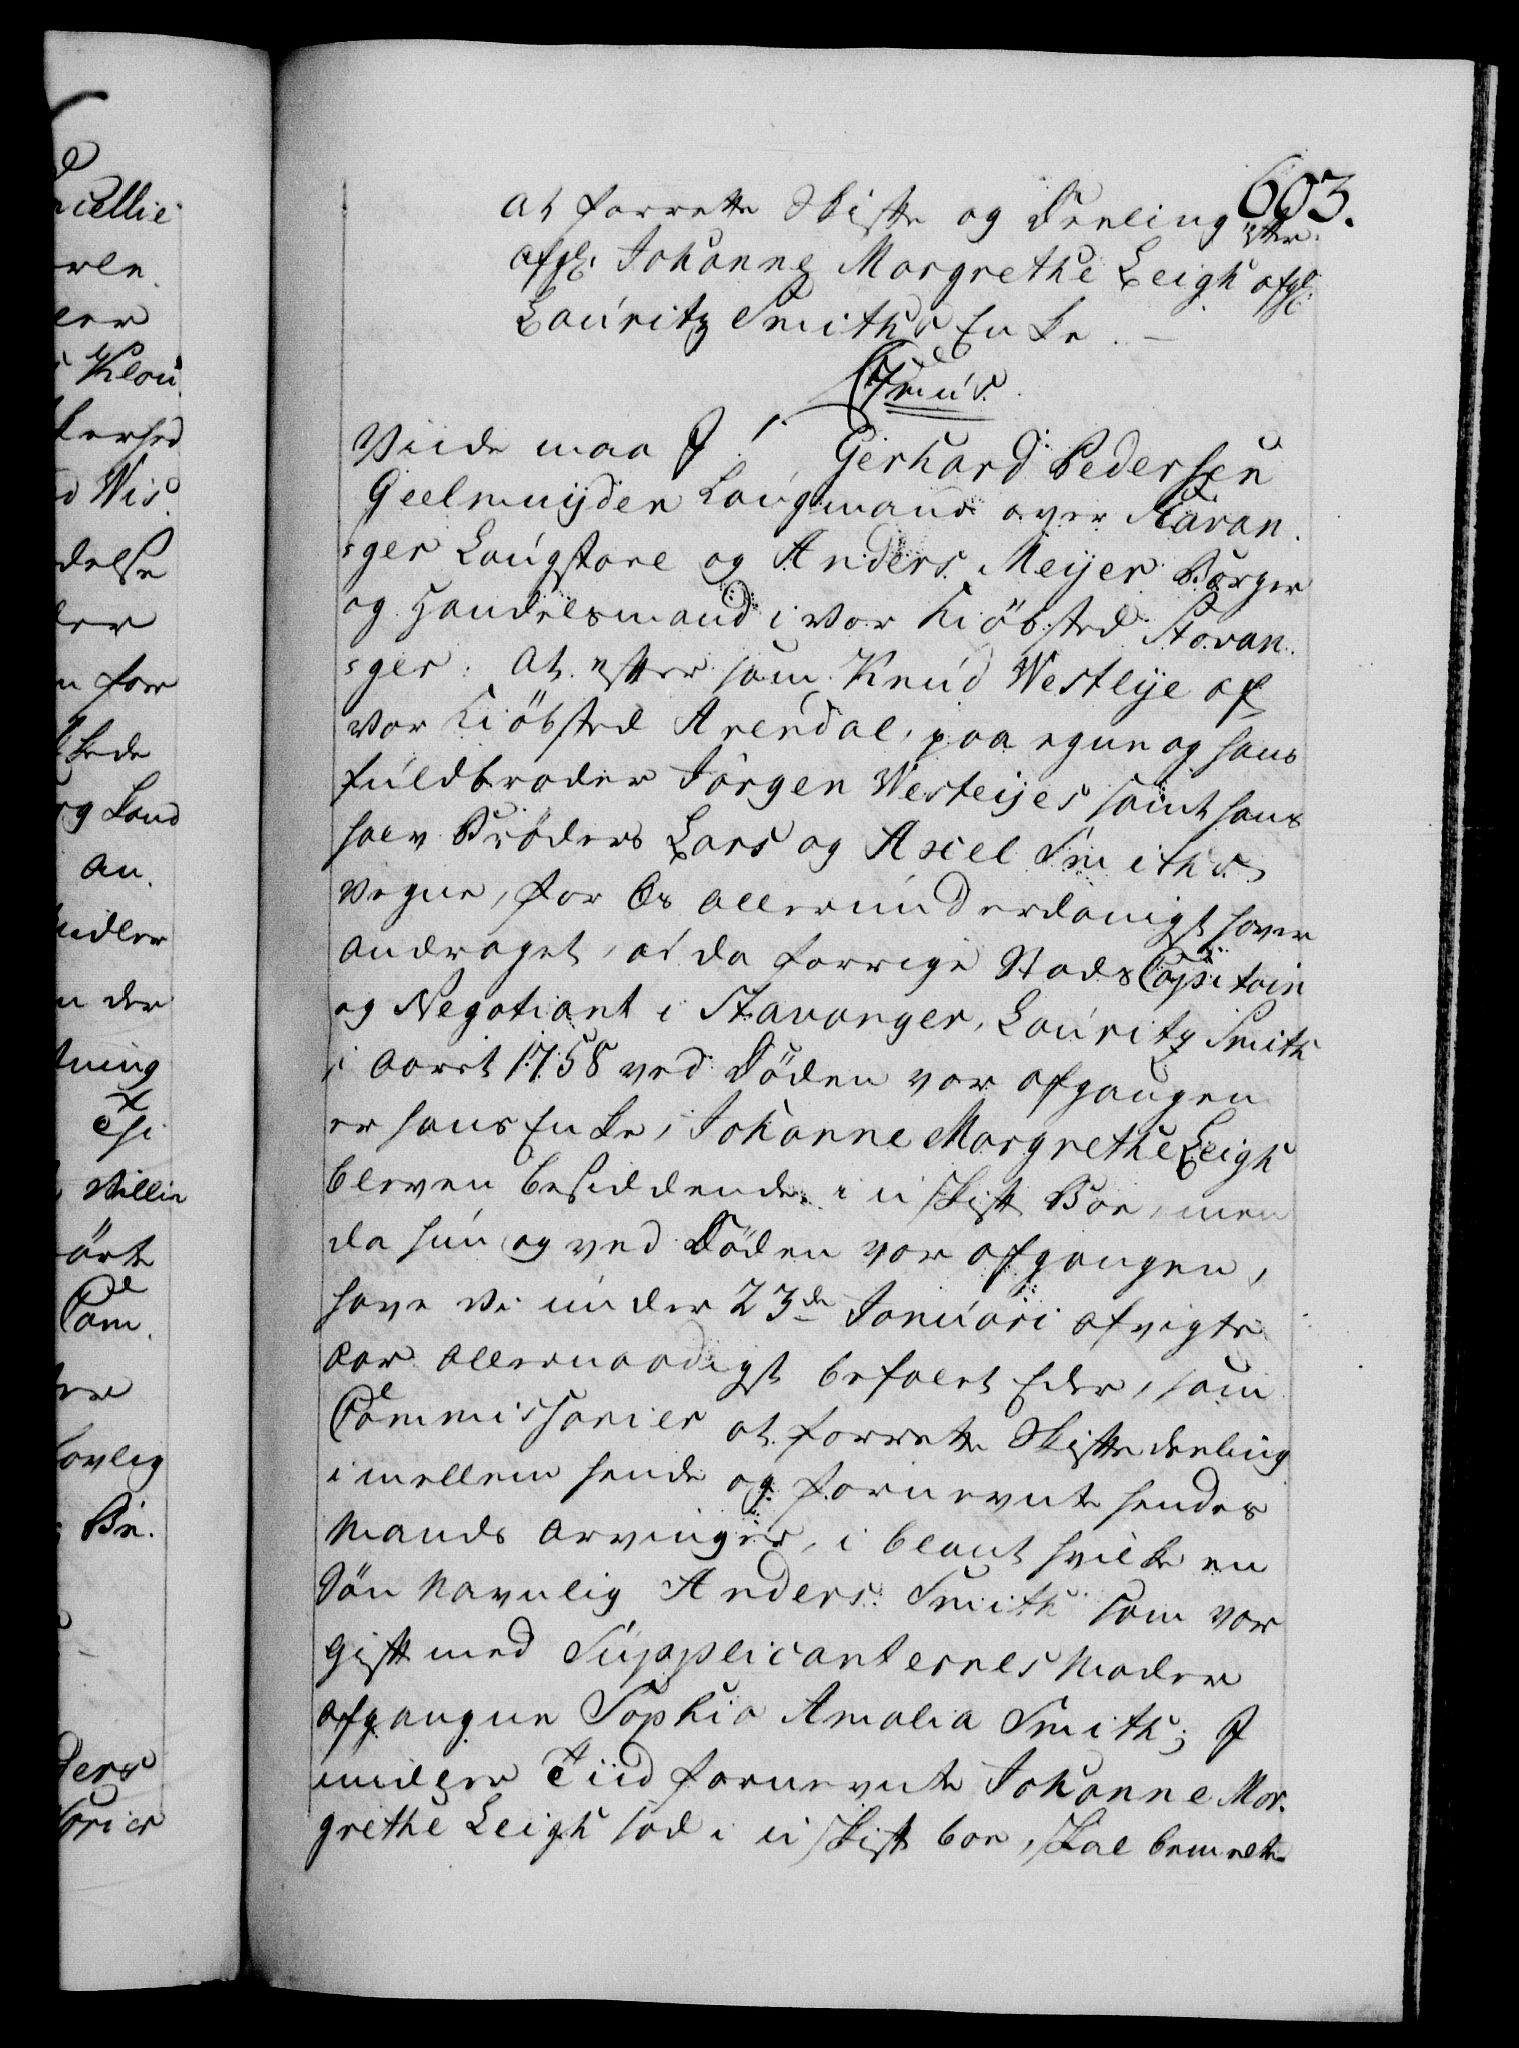 603.
at forrette Skifte og Deeling efter
afgl: Johanne Margrethe Leigh afgl:
Lauritz Smiths Enke. –
C7mus.
Viide maa I! Gerhard Pedersen
Geelmuijden Laugmand over Stavan-
-ger Laugstoel og Anders Meijer Borger
og Handelsmand i vor Kiöbsted Stavan-
-ger: At efter som Knud Westeije af
vor Kiöbsted Arendal, paa egne og hans
fuldbroder Jörgen Westeijes samt hans
halv Bröders Lars og Axel Smiths
vegne, for Os allerunderdanigst haver
andraget, at da forrige Stads Capitain
og Negotiant i Stavanger, Lauritz Smith
i Aaret 1758 ved Döden var afgangen
er hans Enke, Johanne Margrethe Leigh
bleven besiddende i u skift Boe, men
da hun og ved Döden var afgangen,
have Vi under 23de Januari afvigte
Aar allernaadigst befalet Eder, som
Commissarier at forrette Skifte deeling
imellem hende og fornevnte hendes
Mands Arvinger, i blant hvilke en
Sön navnlig Anders Smith som var
gift med Supplicanternes Moder
afgangne Sophia Amalia Smith; I
midler Tiid fornevnte Johanne Mar-
grethe Leigh sad i u skift boe, skal bemelte
ucellie
Klou
Wis
delse
for
og Land
An.
der
tning
Thi
Com
Be.